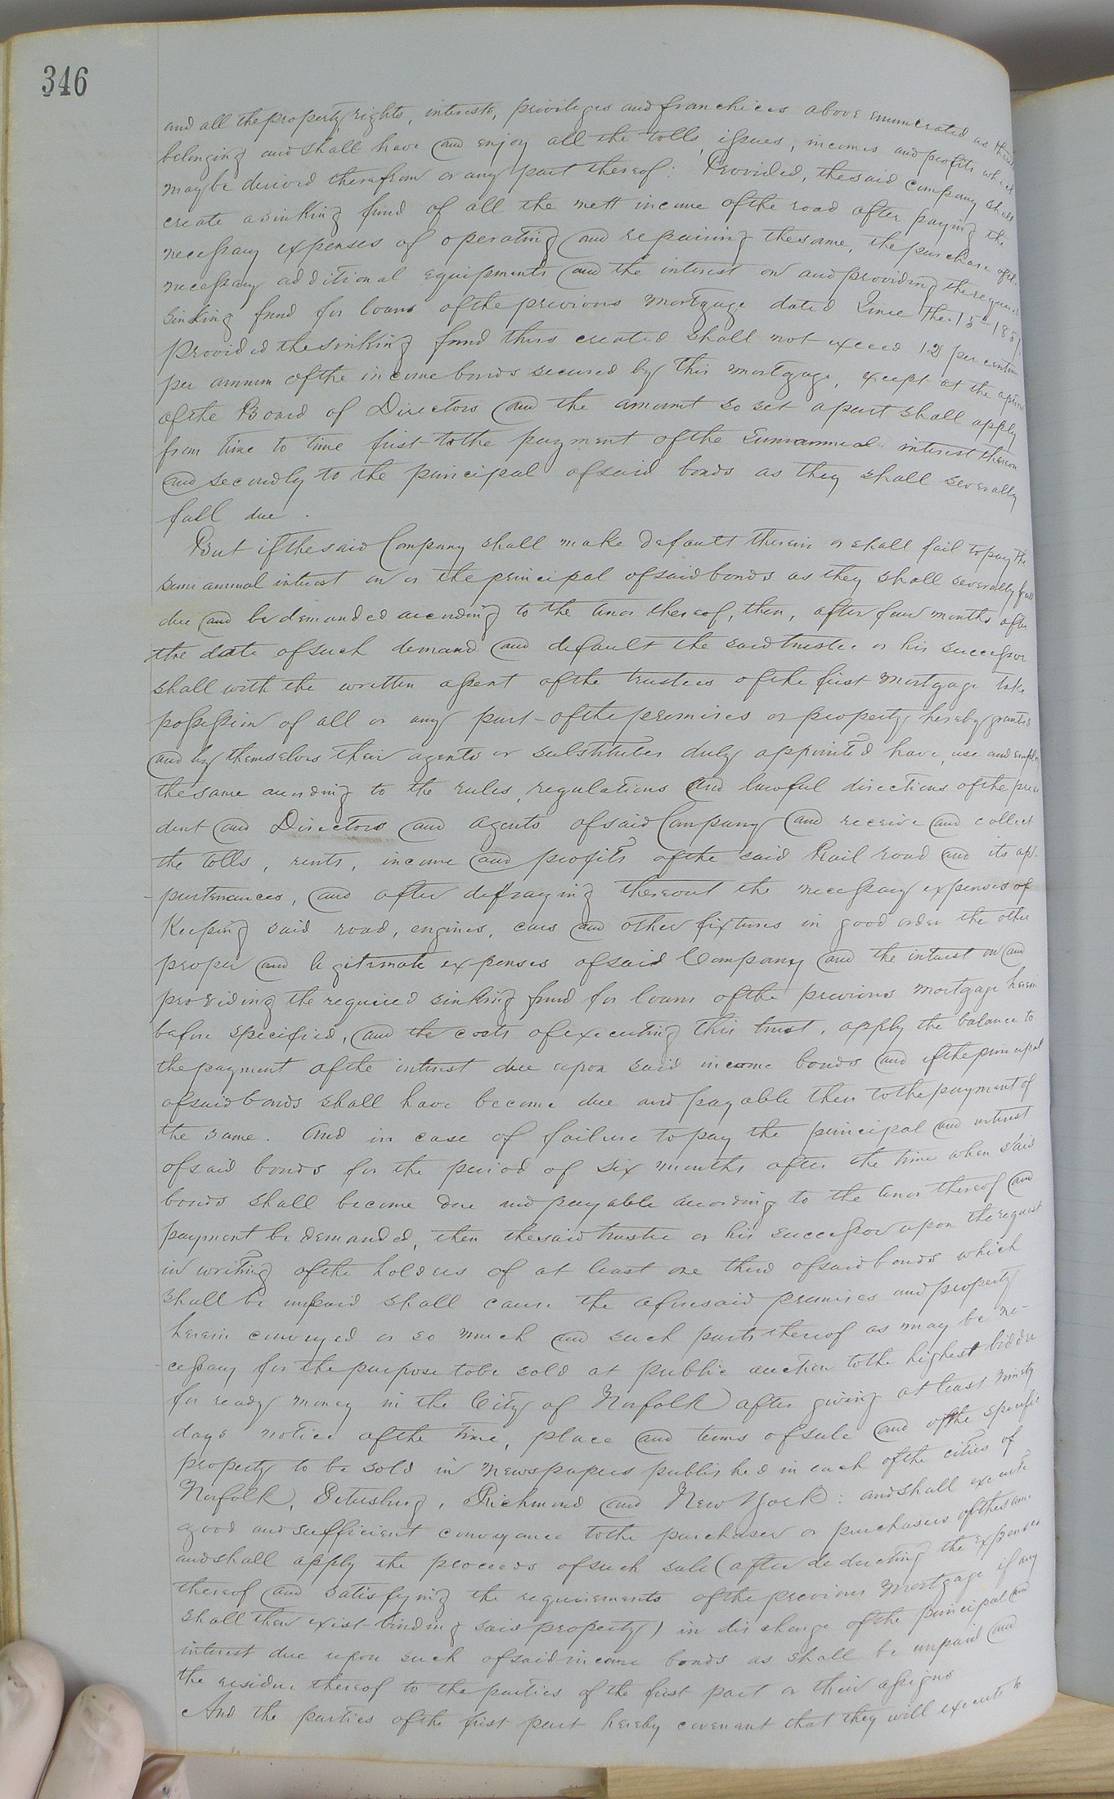 346
and all the property, rights, interests, privileges and franchices above enumerated as
belonging and shall have and enjoy all the tolls, issues, incomes and profits which
may be derived therefrom or any part thereof: Provided, the said company shall
create a sinking fund of all the nett income of the road after paying the
necessary expenses of operating and repairing the same, the purchase of the
necessary additional equipments and the interest on and providing the required
sinking fund for loans of the previous mortgage dated June the 15th
provided the sinking fund thus created shall not exceed 12 per centum
per annum of the income bonds secured by this mortgage, except at the option
of the Board of Directors and the amount so set apart shall apply
from time to time first to the payment of the Semiannual interest thereon
and secondly to the principal of said bonds as they shall severally
fall due.
But if the said Company shall make default therein or shall fail to pay the
semi annual interest on or the principal of said bonds as they shall severally fall
due and be demanded according to the tenor thereof, then, after four months after
the date of such demand and default the said trustee or his successor
shall with the written assent of the trustees of the first mortgage take
possession of all or any part of the premises or property hereby granted
and by themselves their agents or substitutes duly appointed have, use and employ
the same according to the rules, regulations and lawful directions of the presi
dent and Directors and agents of said Company and receive and collect
the tolls, rents, income and profits of the said Rail road and its ap-
purtenances, and after defraying thereout the necessary expenses of
Keeping said road, engines, cars and other fixtures in good order the other
proper and legitimate expenses of said Company and the interest on and
providing the required sinking fund for loans of the previous mortgage herein
before specified, and the costs of executing this trust, apply the balance to
the payment of the interest due upon said income bonds and if the principal
of said bonds shall have become due and payable then to the payment of
the same. And in case of failure to pay the principal and interest
of said bonds for the period of six months after the time when said
bonds shall become due and payable according to the tenor thereof and
payment be demanded, then the said trustee or his successor upon the request
in writing of the holders of at least one third of said bonds which
shall be unpaid shall cause the aforesaid premises and property
herein conveyed or so much and such parts thereof as may be ne-
cessary for the purpose to be sold at public auction to the highest bidder
for ready money in the City of Norfolk after giving at least ninety
days notice of the time, place and terms of sale and of the specific
property to be sold in newspapers published in each of the cities of
Norfolk, Petersburg, Richmond and New York: and shall execute
good and sufficient conveyance to the purchaser or purchasers of the same
and shall apply the proceeds of such sale (after deducting the expenses
thereof and satisfying the requirements of the previous mortgage if any
shall then exist binding said property) in discharge of the principal and
interest due upon such of said income bonds as shall be unpaid and
the residue thereof to the parties of the first part or their assigns
And the parties of the first part hereby covenant that they will execute to